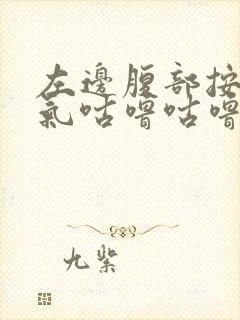 左邊腹部按
氣咕嚕咕嚕
九紫